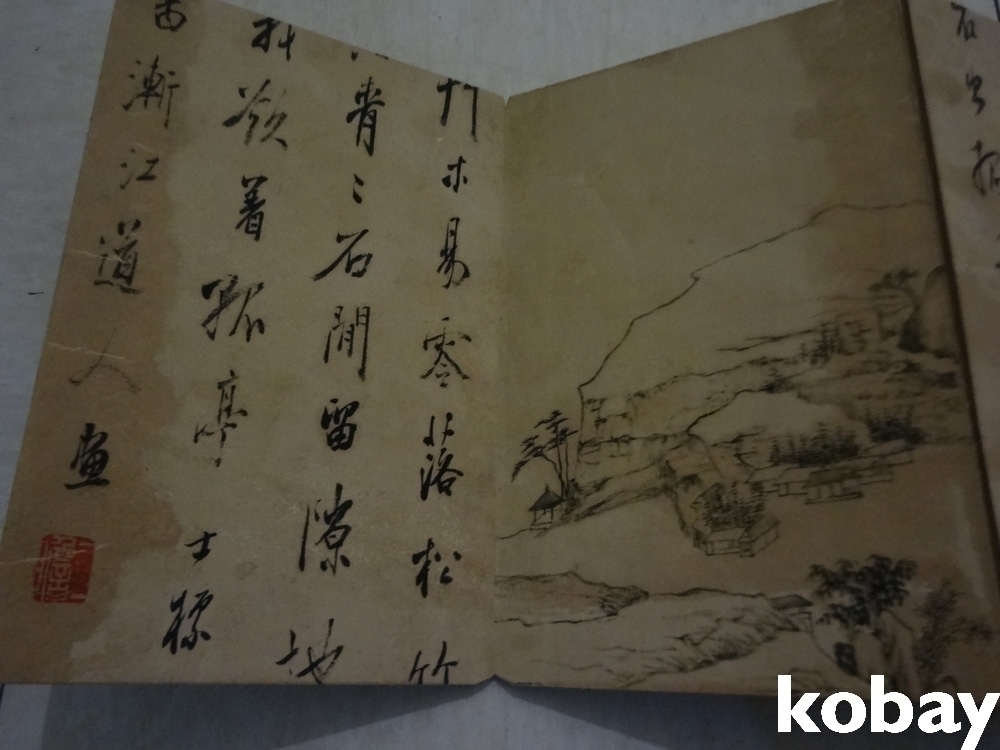 石
木易零落松竹
青〻石間留隙地
料欲着孤亭 士標
漸江道人畫
kobay